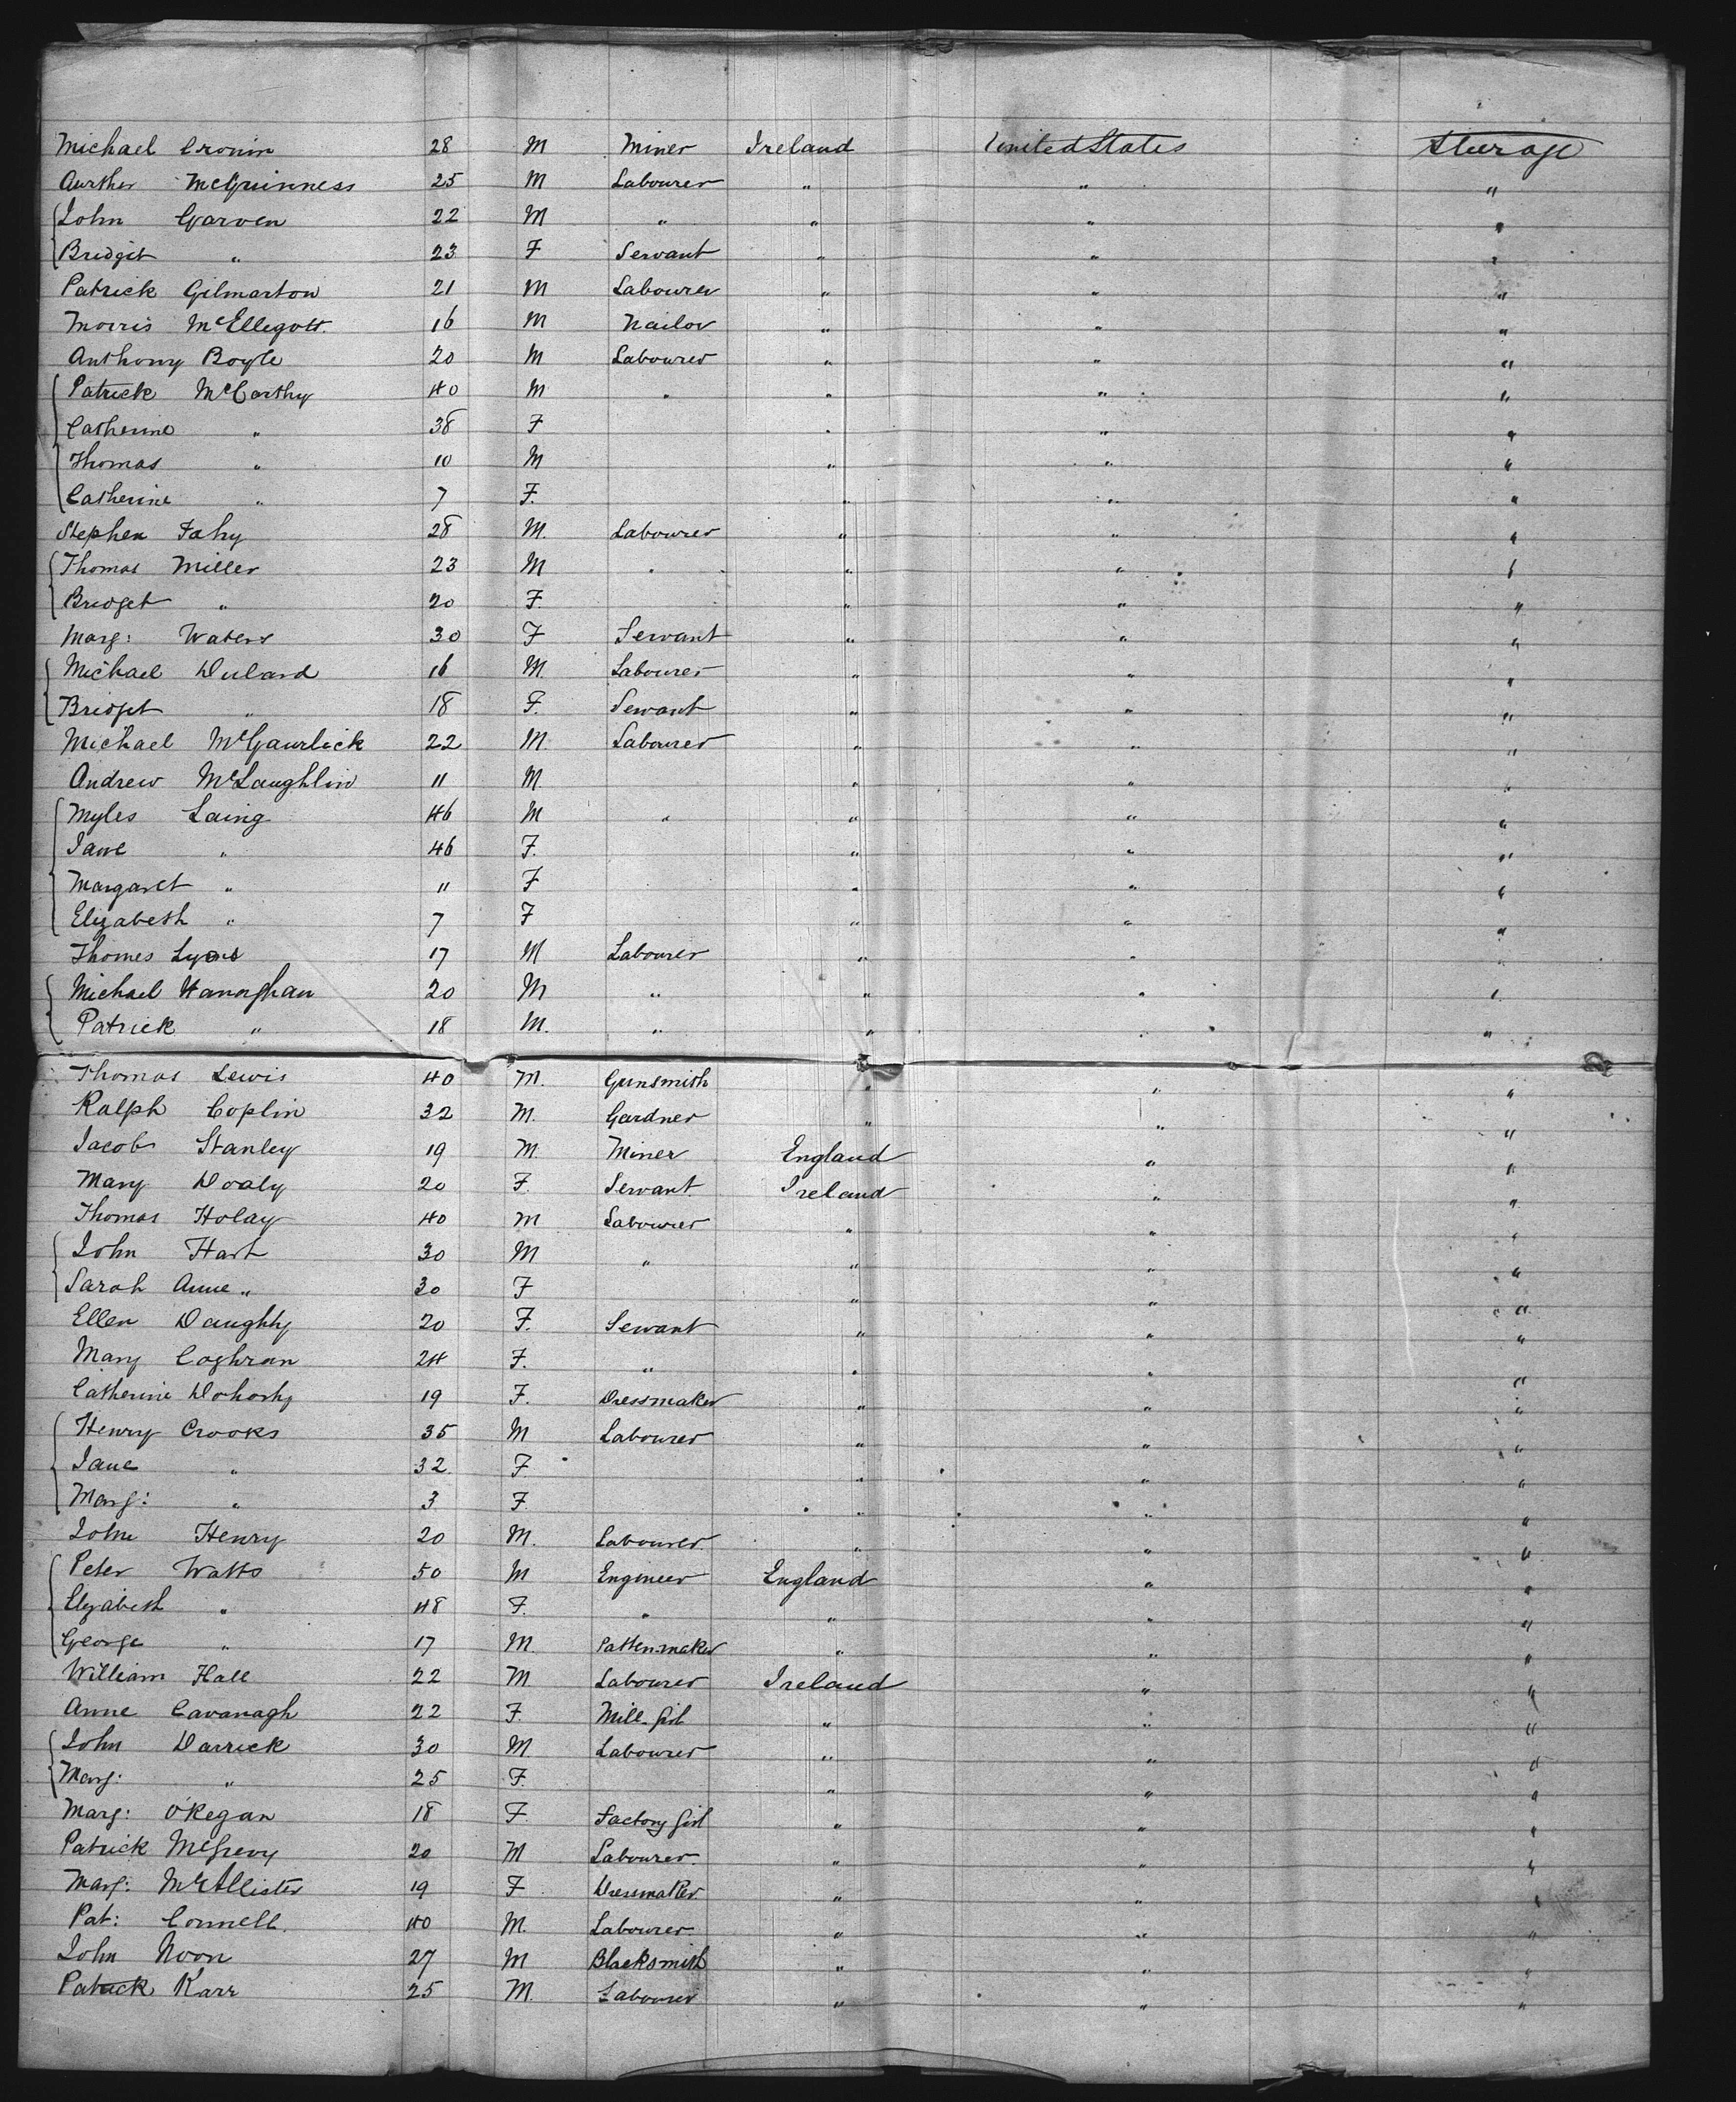 Michael Cronin 28 M Miner Ireland United States Steerage
Aurther McGuinness 25 M Labourer " " "
John Garven 22 M " " " "
Bridget " 23 F Servant " " "
Patrick Gilmarton 21 M Labourer " " "
Morris McEllegott. 16 M Nailor " " "
Anthony Boyle 20 M Labourer " " "
Patrick McCarthy 40 M " " " "
Catherine " 38 F " " "
Thomas " 10 M " " "
Catherine " 7 F. " " "
Stephen Fahy 28 M. Labourer " " "
Thomas Miller 23 M " " " "
Bridget " 20 F. " " "
Marg: Waters 30 F Servant " " "
Michael Dulard 16 M. Labourer " " "
Bridget " 18 F. Servant " " "
Michael McGaurlick 22 M. Labourer " " "
Andrew McLaughlin 11 M. " " "
Myles Laing 46 M " " " "
Jane " 46 F. " " "
Margaret " 11 F " " "
Elizabeth " 7 F " " "
Thomes Lyons 17 M Labourer " " "
Michael 20 M " " " "
Patrick " 18 M. " " " "
Thomas Lewis 40 M. Gunsmith " " "
Ralph Coplin 32 M. Gardner " " "
Jacob Stanley 19 M. Miner England " "
Mary Dealy 20 F. Servant Ireland " "
Thomas Holay 40 M Labourer " " "
John Hart 30 M " " " "
Sarah Anne " 30 F " " "
Ellen Daughty 20 F. Servant " " "
Mary Coghran 24 F. " " " "
Catherine Dohorty 19 F. Dressmaker " " "
Henry Crooks 35 M Labourer " " "
Jane " 32. F " " "
Marg: " 3 F. " " "
John Henry 20 M. Labourer. " " "
Peter Watts 50 M Engineer England " "
Elizabeth " 48 F. " " " "
George " 17 M. Patten-maker " " "
William Hall 22 M Labourer Ireland " "
Anne Cavanagh 22 F. Mill-Girl " " "
John Darrick 30 M. Labourer " " "
Marg: " 25 F. " " "
Marg: O'Kegan 18 F. Factory Girl " " "
Patrick McGrevy 20 M Labourer. " " "
Marg: McAllister 19 F Dressmaker " " "
Pat: Connell. 40 M. Labourer " " "
John Noon 27 M Blacksmith " " "
Patrick Karr 25 M. Labourer " " "